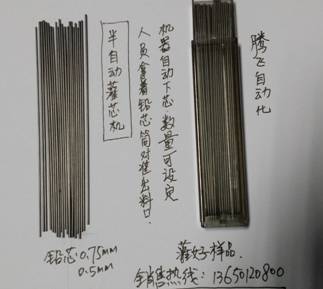 半自动灌芯机
机器自动下芯 数量可设定
人员拿着铅芯筒对准出料口.
腾飞自动化
铅芯:0.75mm
0.5mm
灌好样品.
销售热线: 13650120800